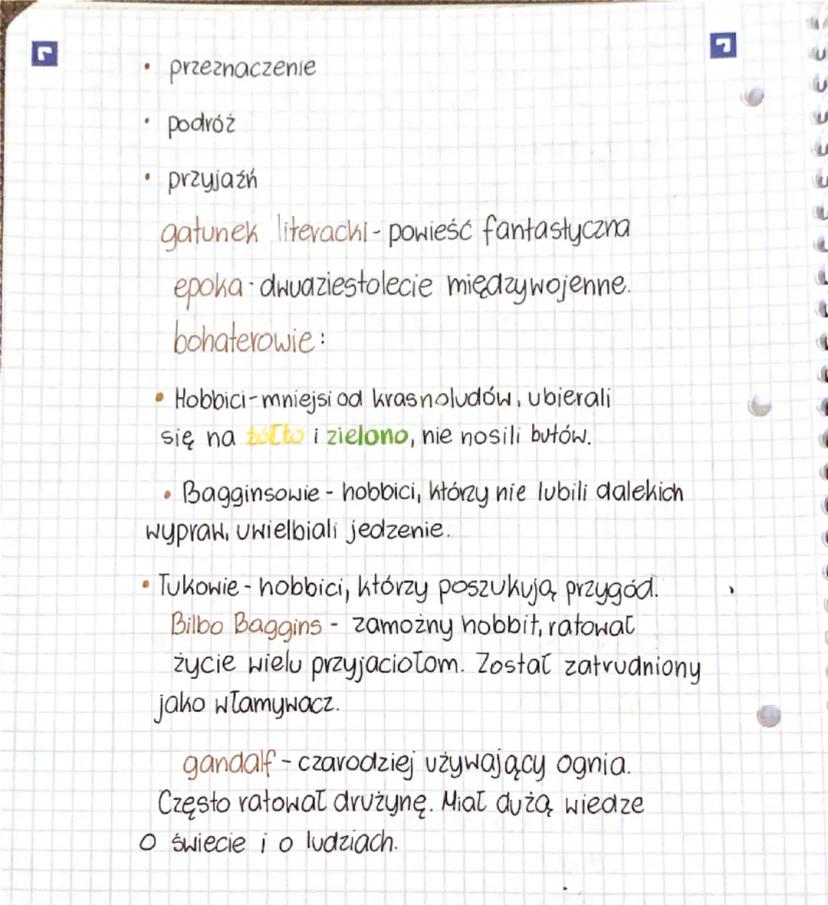 • przeznaczenie
• podróż
• przyjaźń
gatunek literacki - powieść fantastyczna
epoka - dwudziestolecie międzywojenne.
bohaterowie:
• Hobbici - mniejsi od krasnoludów, ubierali
się na żółto i zielono, nie nosili butów.
• Bagginsowie - hobbici, którzy nie lubili dalekich
wypraw, uwielbiali jedzenie.
• Tukowie - hobbici, którzy poszukują przygód.
Bilbo Baggins - zamożny hobbit, ratował
życie wielu przyjaciołom. Został zatrudniony
jako włamywacz.
gandalf - czarodziej używający ognia.
Często ratował drużynę. Miał dużą wiedze
o świecie i o ludziach.